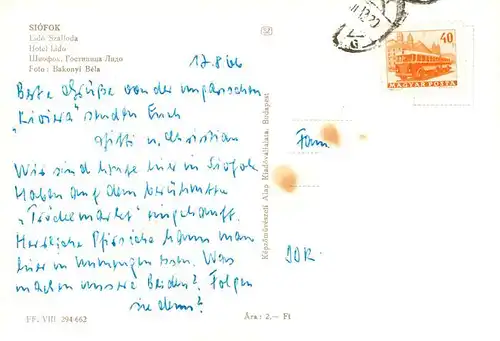 SIÓFOK
Lidó Szálloda
Hotel Lido
Шиофок, Гостиница Лидо
Foto: Bakonyi Béla
17.8.66
Beste Grüße von der ungarischen
"Riviera" senden Euch
u. Christian
Wir sind heute hier in Siofok
Haben auf dem berühmten
"Trödelmarkt" eingekauft.
Herrliche Pfirsiche kann man
hier in Unmengen essen. Was
machen unsere Beiden? Folgen
sie denn?
Képzőművészeti Alap Kiadóvállalata, Budapest
40 f
MAGYAR POSTA
Fam.
DDR
FF. VIII 294-662
Ára: 2,— Ft